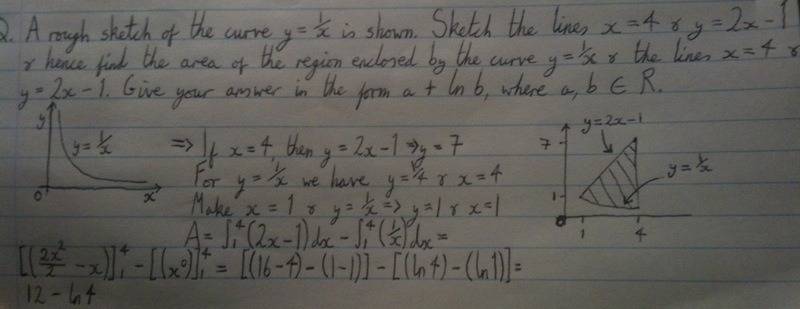 2. A rough sketch of the curve y = 1/x is shown. Sketch the lines x = 4 & y = 2x - 1
& hence find the area of the region enclosed by the curve y = 1/x & the lines x = 4 &
y = 2x - 1. Give your answer in the form a + ln b, where a, b ∈ R.
y
y = 1/x
0
x
=> If x = 4, then y = 2x - 1 => y = 7
For y = 1/x we have y = 1/4 & x = 4
Make x = 1 & y = 1/x => y = 1 & x = 1
A = ∫₁⁴(2x - 1)dx - ∫₁⁴(1/x)dx =
[(2x²/2 - x)]₁⁴ - [(x⁰)]₁⁴ = [(16 - 4) - (1 - 1)] - [(ln 4) - (ln 1)] =
12 - ln 4
y = 2x - 1
7
y = 1/x
1
0
1
4